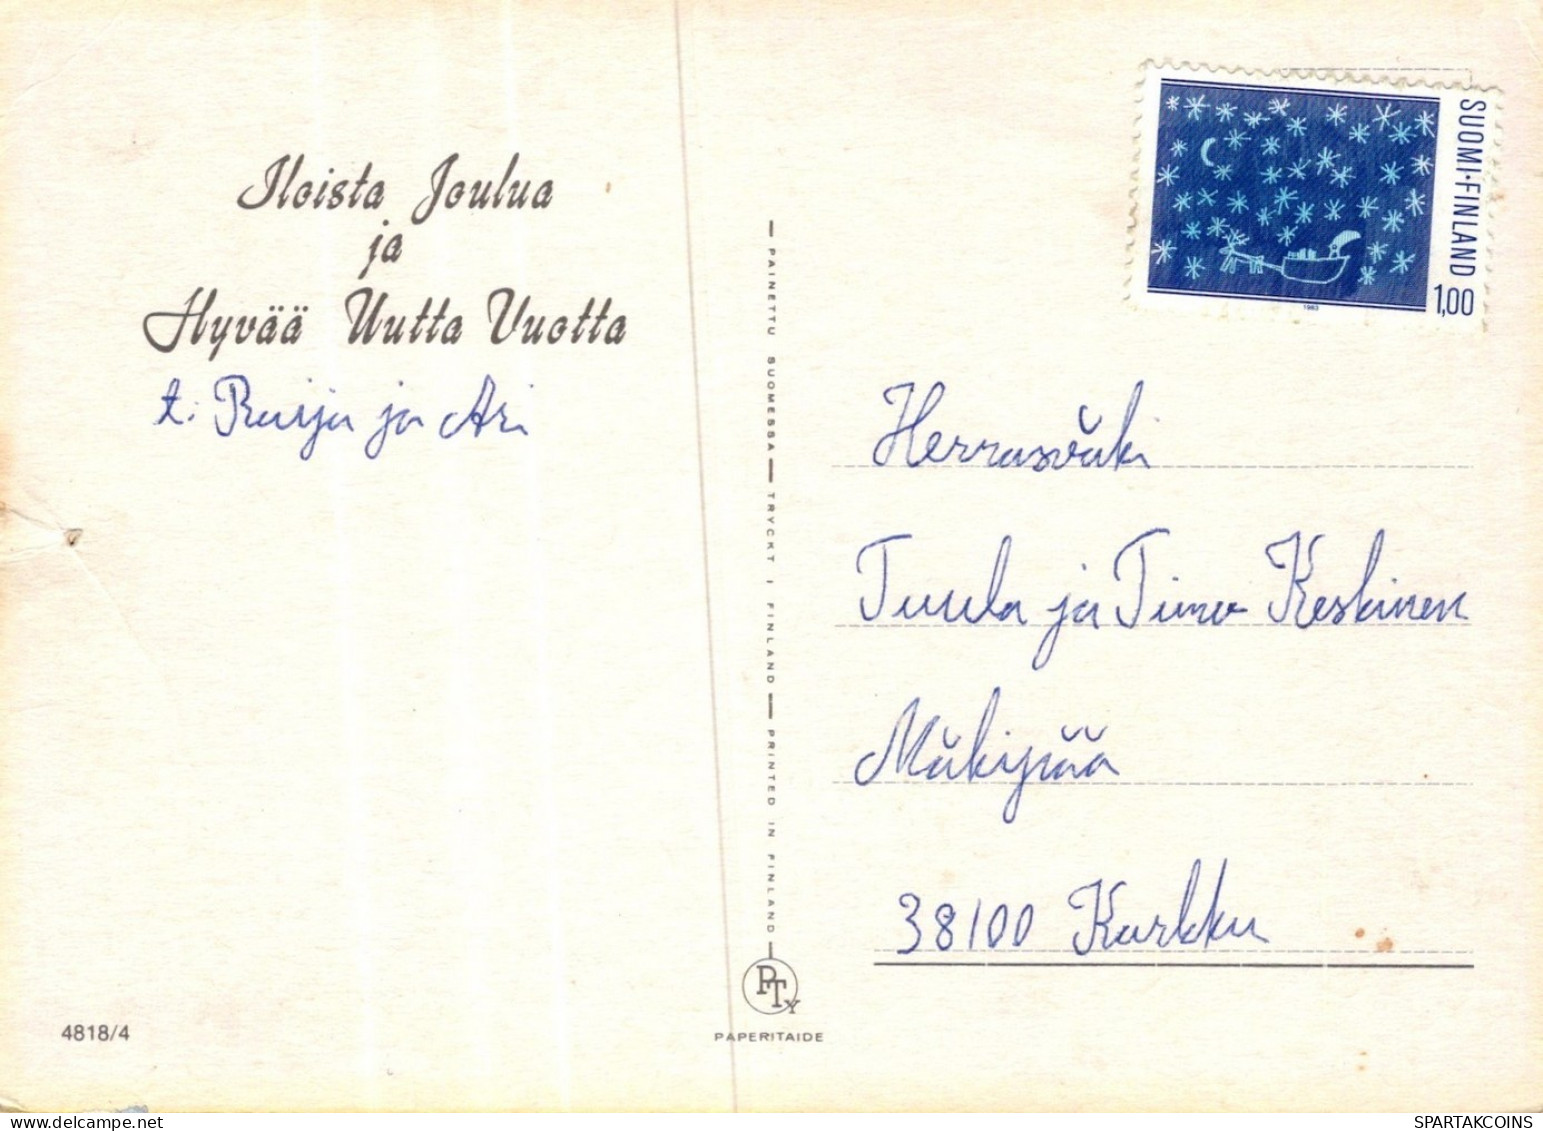 Iloista Joulua
ja
Hyvää Uutta Vuotta
t: Raija ja Ari
4818/4
PAINETTU SUOMESSA — TRYCKT I FINLAND — PRINTED IN FINLAND
PTY
PAPERITAIDE
SUOMI·FINLAND
1,00
1983
Herrasväki
Tuula ja Timo Keskinen
Mäkipää
38100 Karkku
SPARTAKCOINS